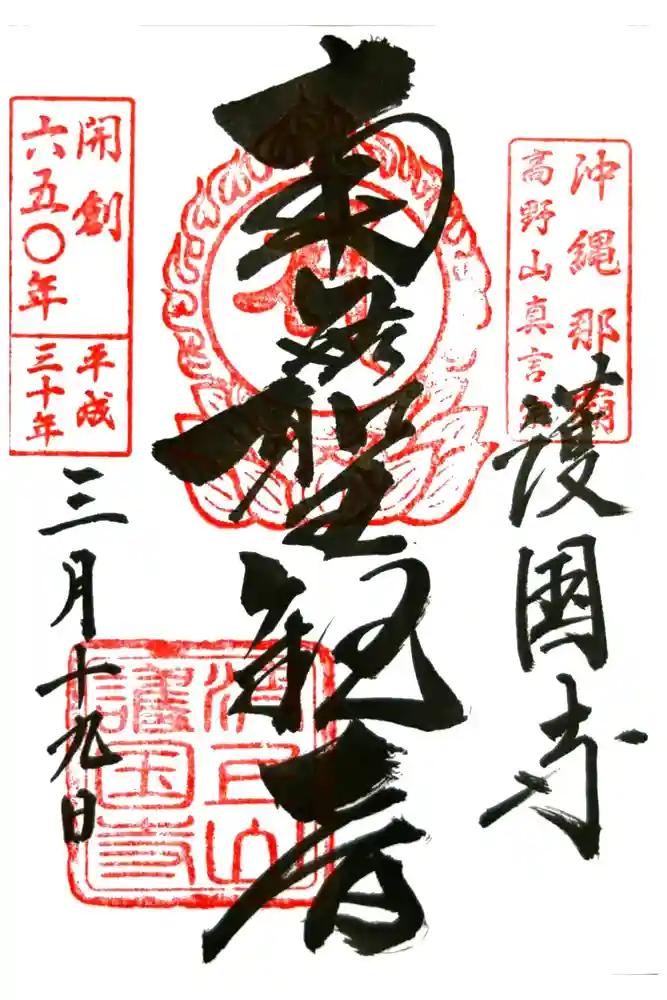 沖縄那覇
高野山真言宗
護国寺
南無聖観音
開創
六五〇年
平成
三十年
三月十九日
護国寺